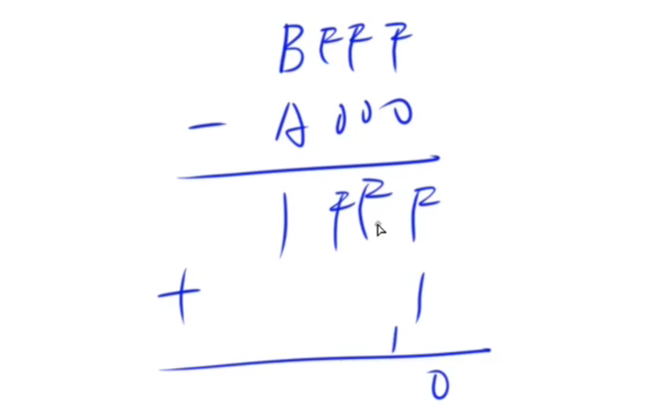 BFFF
- A000
1FFF
+ 1
1
0